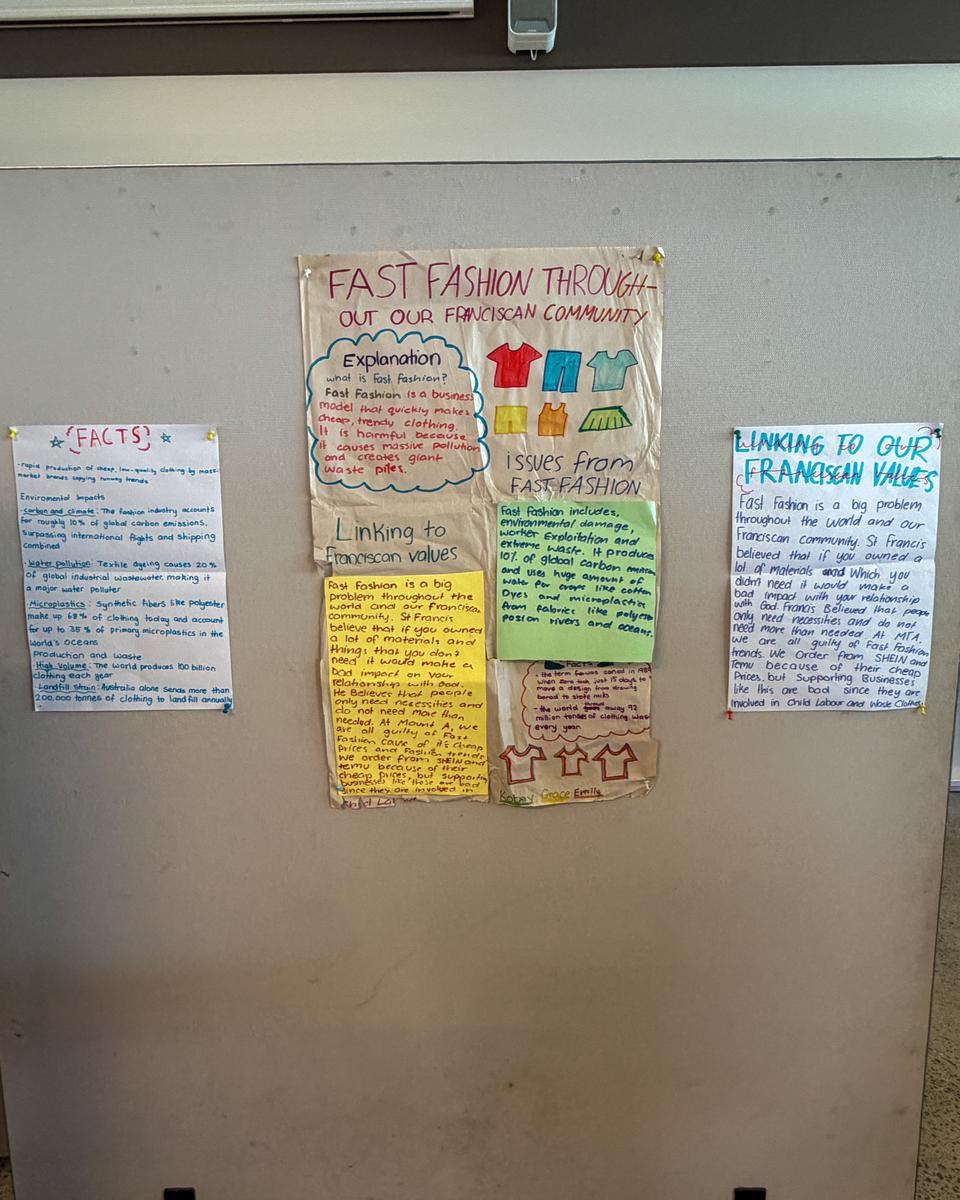 FACTS
-rapid production of cheap, low-quality clothing by mass-
market brands copying runway trends
Enviromental Impacts
-carbon and climate: The fashion industry accounts
for roughly 10% of global carbon emissions,
surpassing international flights and shipping
combined
-Water pollution: Textile dyeing causes 20%
of global industrial wastewater, making it
a major water polluter
-Microplastics: Synthetic fibers like polyester
make up 69% of clothing today and account
for up to 35% of primary microplastics in the
world's oceans
Production and waste
High Volume: The world produces 100 billion
clothing each year
-Landfill Strain: Australia alone sends more than
200.000 tonnes of clothing to landfill annually
FAST FASHION THROUGH-
OUT OUR FRANCISCAN COMMUNITY
Explanation
what is Fast Fashion?
Fast Fashion is a business
model that quickly makes
cheap, trendy clothing.
It is harmful because
it causes massive pollution
and creates giant
waste piles.
Linking to
Franciscan values
Fast Fashion is a big
problem throughout the
world and our Francisca
community. St Francis
believe that if you owned
a lot of materials and
things that you don't
need it would make a
bad impact on your
relationship with God.
He Believes that people
only need necessities and
do not need more than
needed. At Mount A, we
are all guilty of Fast
Fashion cause of it's cheap
prices and Fashion trends
we order from SHEIN and
temu because of their
cheap prices, but supporting
businesses like these are bad
since they are involved in
child
issues from
FAST FASHION
Fast Fashion includes,
environmental damage,
worker Exploitation and
extreme waste. It produces
10% of global carbon
and uses huge amount of
water for crops like cotton
Dyes and microplastics
from fabrics like polyester
posion rivers and oceans.
Facts
• the term Fashion coined in
when Zara took just 15 days to
move a design from drawing
bored to store
• the world throws away 92
million tonnes of clothing
every year.
Kobey Grace Emily
LINKING TO OUR
FRANCISCAN VALUES
Fast Fashion is a big problem
throughout the world and our
Franciscan community. St Francis
believed that if you owned a
lot of materials and Which you
didn't need it would make a
bad impact with your relationship
with God. Francis Believed that people
only need necessities and do not
need more than needed At MTA,
we are all guilty of Fast Fashion
trends. We Order from SHEIN and
Temu because of their cheap
Prices, but Supporting Businesses
like this are bad since they are
involved in Child Labour and Waste